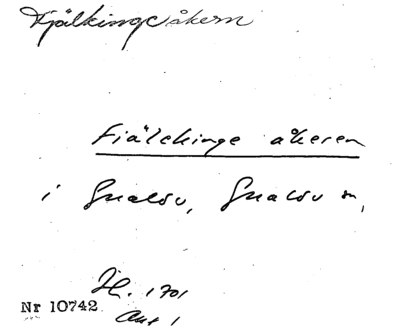 Fjälkinge åkern
Fiälckinge åkeren
i Gualöv, Gualöv sn,
Jb. 1701
Nr 10742
Akt 1